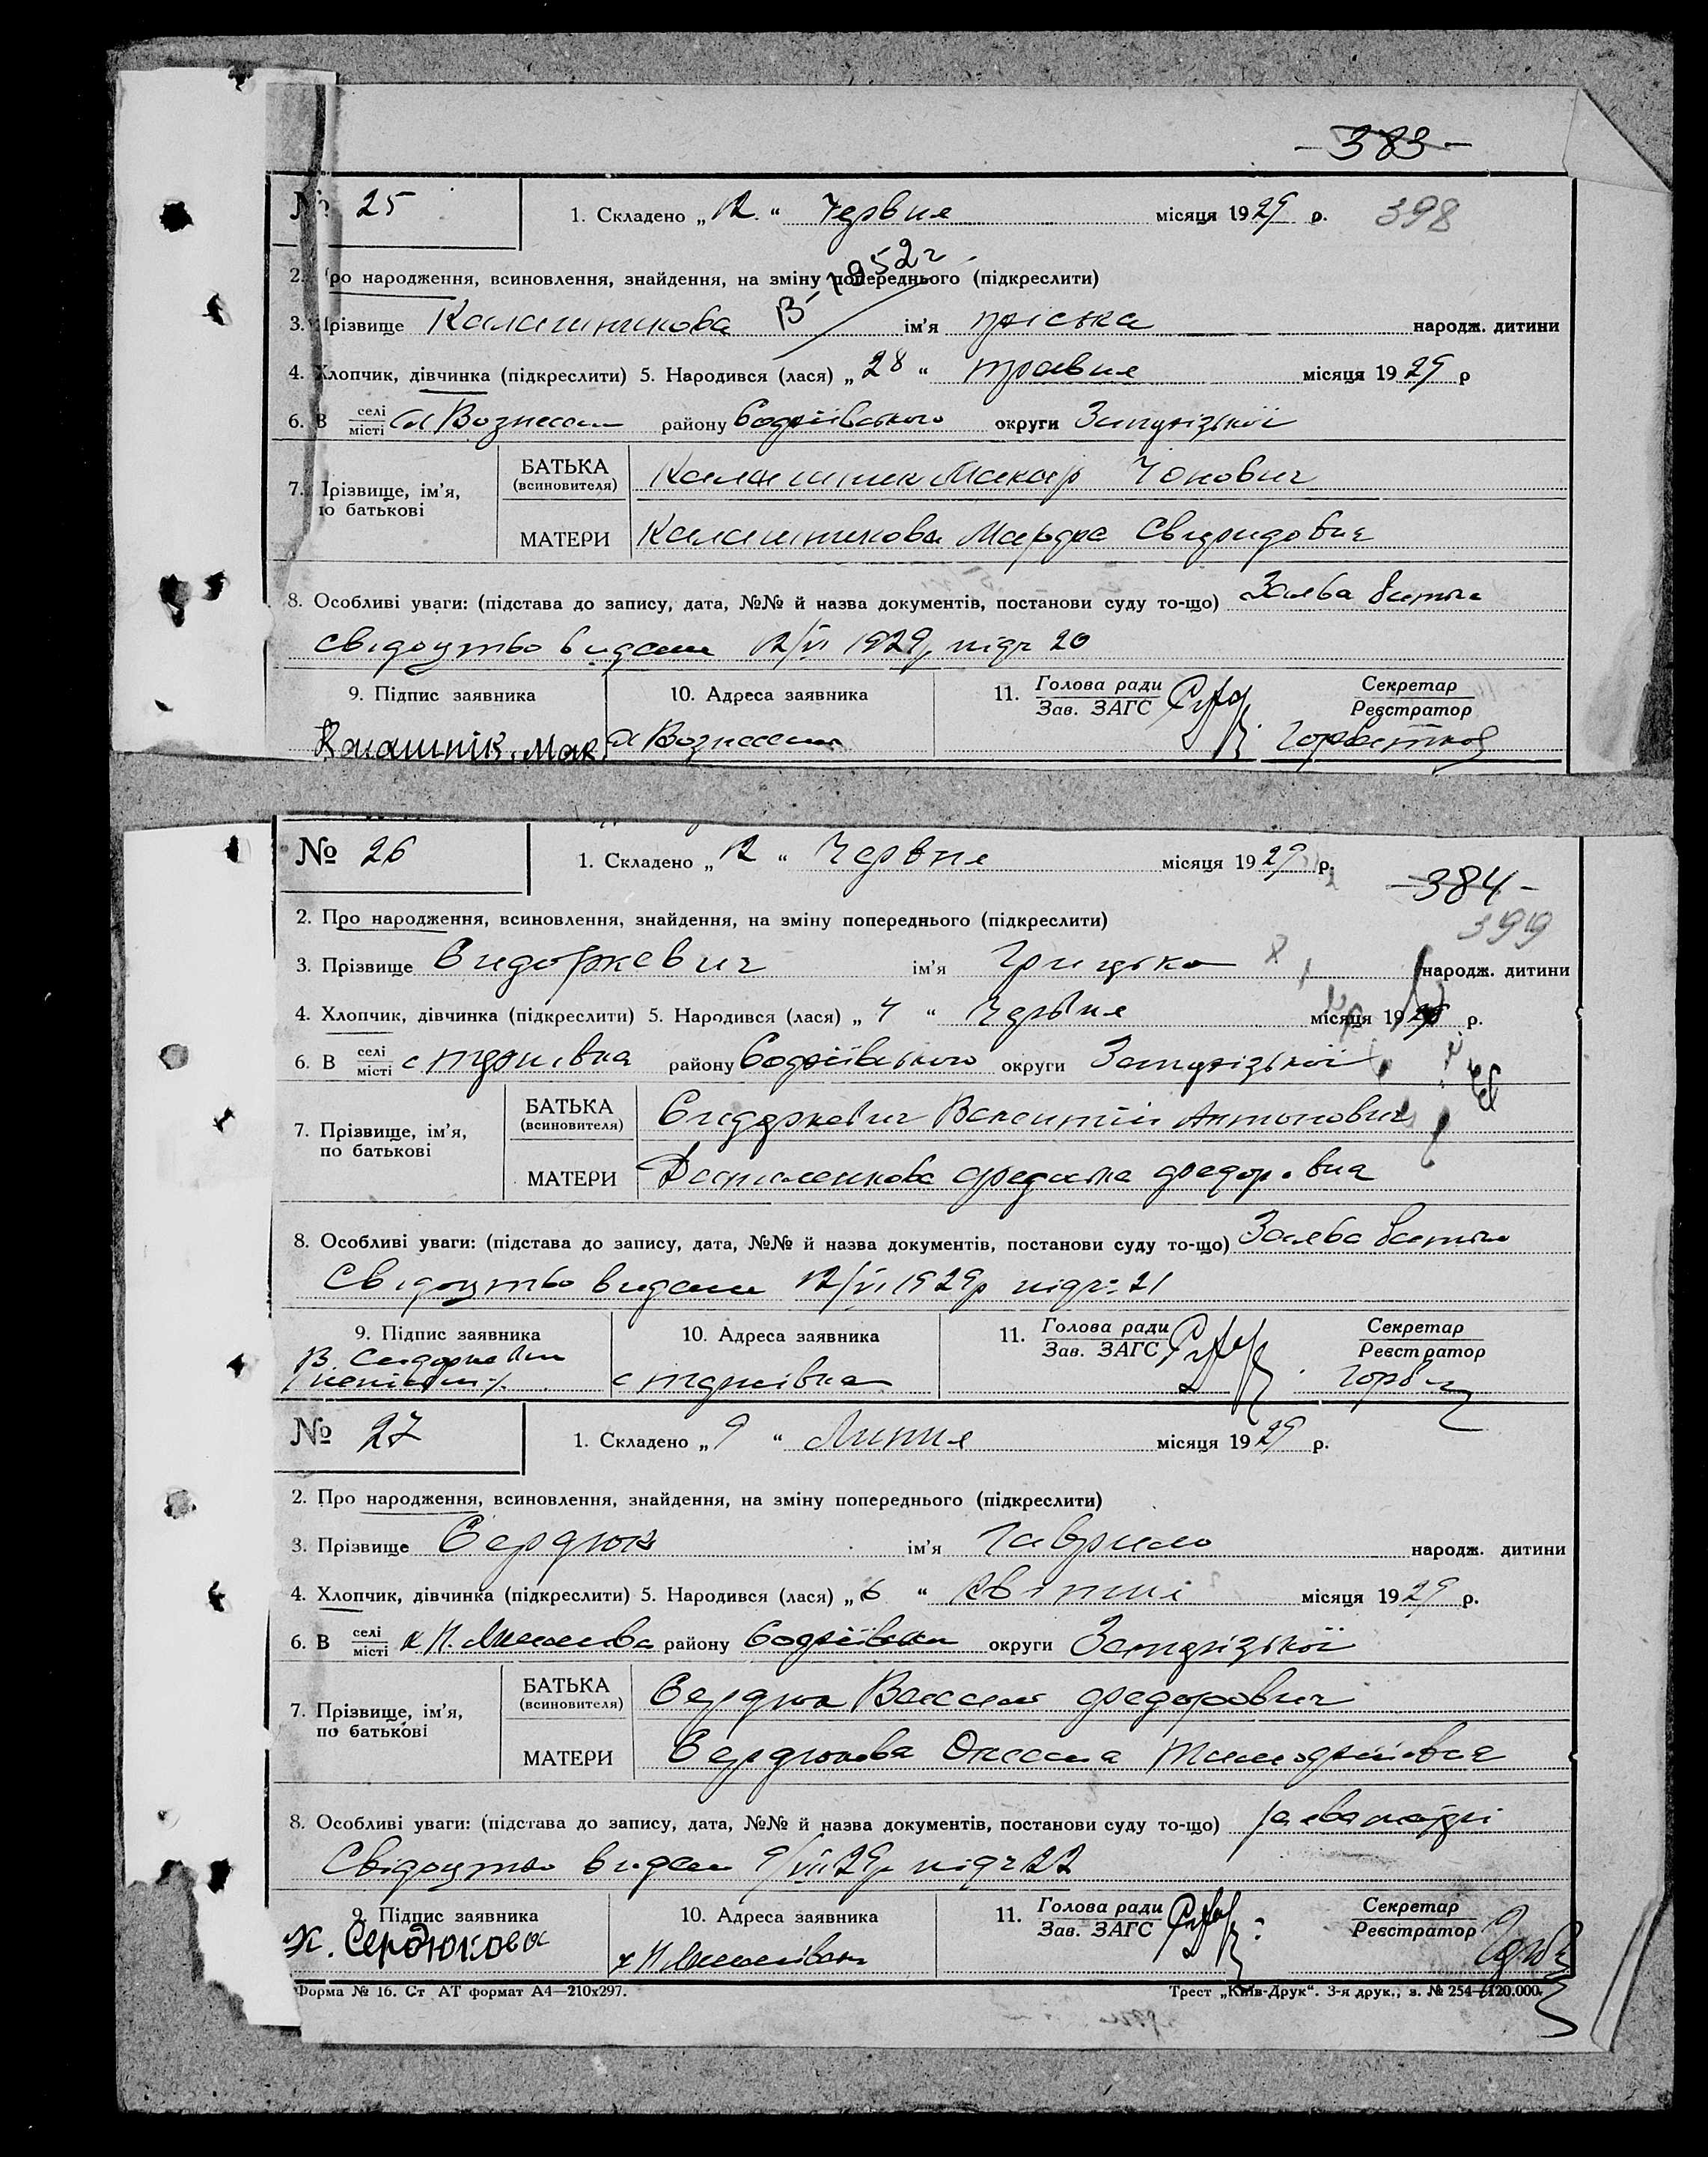 -383-
№ 25 1. Складено „12“ Червня місяця 1929 р. 398
2. Про народження, всиновлення, знайдення, на зміну попереднього (підкреслити)
В-1952г
3. Прізвище Калашникова ім'я Пріська народж. дитини
4. Хлопчик, дівчинка (підкреслити) 5. Народився (лася) „28“ травня місяця 1929 р
6. В селі/місті Вознесен району Софіївського округи Запорізької
7. Прізвище, ім'я, по батькові
БАТЬКА (всиновителя) Калашник Макар Йонович
МАТЕРИ Калашникова Марфа Свиридовна
8. Особливі уваги: (підстава до запису, дата, №№ й назва документів, постанови суду то-що) Заява батька
свідоцтво видане 12/VI 1929р 20
9. Підпис заявника 10. Адреса заявника 11. Голова ради/Зав. ЗАГС Секретар/Реєстратор
Калашнік. Мак. Вознесен
№ 26 1. Складено „12“ Червня місяця 1929 р.
-384-
399
2. Про народження, всиновлення, знайдення, на зміну попереднього (підкреслити)
3. Прізвище Сидоркевич ім'я Грицько народж. дитини
4. Хлопчик, дівчинка (підкреслити) 5. Народився (лася) „4“ Червня місяця 1929 р.
6. В селі/місті с району Софіївського округи Запорізької
7. Прізвище, ім'я, по батькові
БАТЬКА (всиновителя) Сидоркевич Валентій Антонович
МАТЕРИ Федоська Федоровна
8. Особливі уваги: (підстава до запису, дата, №№ й назва документів, постанови суду то-що) Заява батька
Свідоцтво видане 12/VI 1929р 21
9. Підпис заявника 10. Адреса заявника 11. Голова ради/Зав. ЗАГС Секретар/Реєстратор
В. Сидоркевич
№ 27 1. Складено „9“ Липня місяця 1929 р.
2. Про народження, всиновлення, знайдення, на зміну попереднього (підкреслити)
3. Прізвище Сердюк ім'я Гаврило народж. дитини
4. Хлопчик, дівчинка (підкреслити) 5. Народився (лася) „6“ квітні місяця 1929 р.
6. В селі/місті району Софіївськ округи Запорізької
7. Прізвище, ім'я, по батькові
БАТЬКА (всиновителя) Сердюк Василь Федорович
МАТЕРИ Сердюкова Оксана Тимофіївна
8. Особливі уваги: (підстава до запису, дата, №№ й назва документів, постанови суду то-що) заява матері
Свідоцтво видан 9/VII 29р 22
9. Підпис заявника 10. Адреса заявника 11. Голова ради/Зав. ЗАГС Секретар/Реєстратор
К. Сердюкова
Форма № 16. Ст АТ формат А4—210х297. Трест „Київ-Друк“. 3-я друк., з. № 254—120.000.